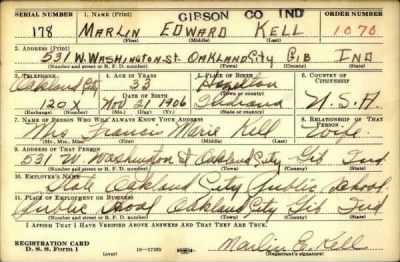 GIBSON CO IND
SERIAL NUMBER 1. NAME (Print) ORDER NUMBER
178 MARLIN EDWARD KELL 1070
(First) (Middle) (Last)
2. ADDRESS (Print)
531 W. WASHINGTON ST. OAKLAND CITY GIB IND
(Number and street or R. F. D. number) (Town) (County) (State)
3. TELEPHONE 4. AGE IN YEARS 5. PLACE OF BIRTH 6. COUNTRY OF CITIZENSHIP
Oakland City 33 Hazelton
DATE OF BIRTH
120X Nov 21 1906 Indiana U.S.A.
(Exchange) (Number) (Mo.) (Day) (Yr.) (State or country)
7. NAME OF PERSON WHO WILL ALWAYS KNOW YOUR ADDRESS 8. RELATIONSHIP OF THAT PERSON
Mrs. Francis Marie Kell Wife
(Mr., Mrs., Miss) (First) (Middle) (Last)
9. ADDRESS OF THAT PERSON
531 W. Washington St Oakland City Gib Ind.
(Number and street or R. F. D. number) (Town) (County) (State)
10. EMPLOYER'S NAME
State Oakland City Public School
11. PLACE OF EMPLOYMENT OR BUSINESS
Public School Oakland City Gib Ind
(Number and street or R. F. D. number) (Town) (County) (State)
I AFFIRM THAT I HAVE VERIFIED ABOVE ANSWERS AND THAT THEY ARE TRUE.
REGISTRATION CARD
D. S. S. Form 1 16-17105 Marlin E. Kell
(Registrant's signature)